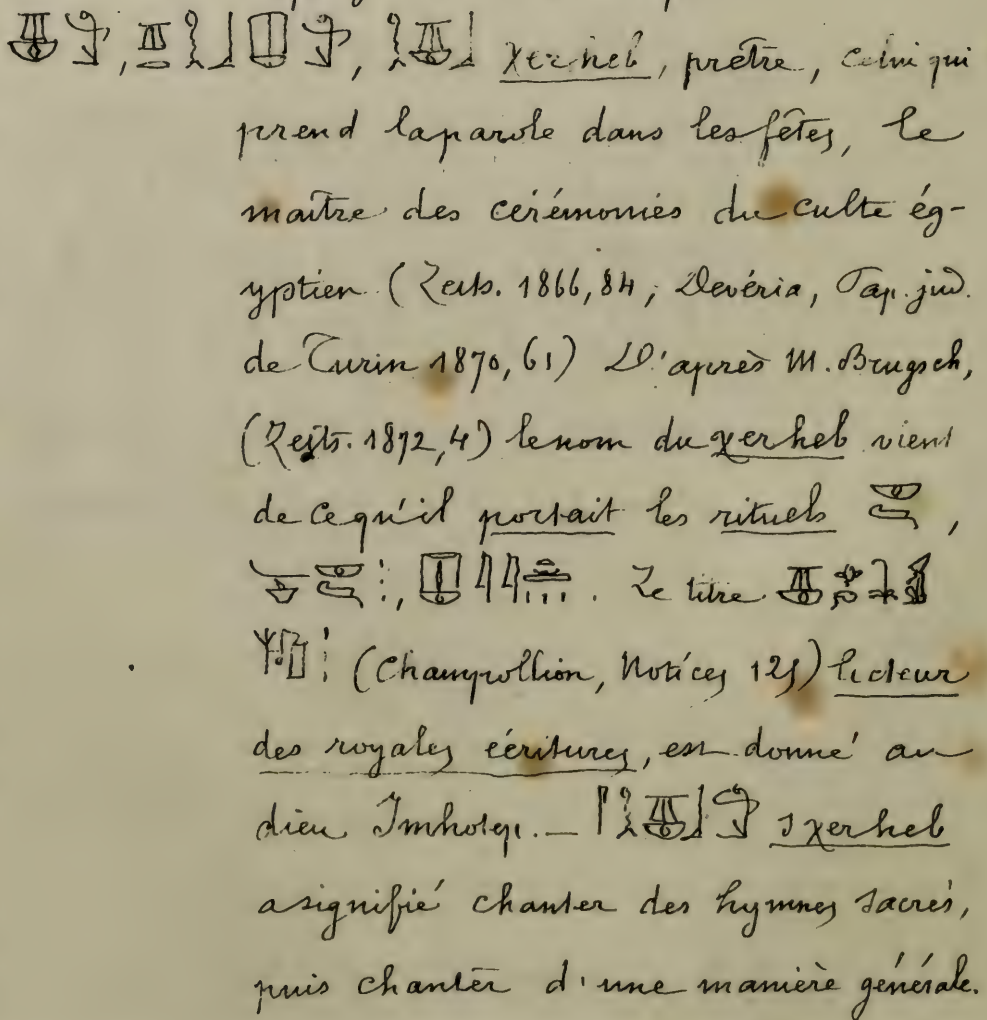 χerheb, prêtre, celui qui
prend la parole dans les fêtes, le
maître des cérémonies du culte ég-
yptien (Zeits. 1866, 84 ; Devéria, Pap. jud.
de Turin 1870, 61) D'après M. Brugsch,
(Zeits. 1872, 4) le nom du χerheb vient
de ce qu'il portait les rituels ,
, . Le titre
(Champollion, Notices 125) lecteur
des royales écritures, est donné au
dieu Imhotep. — sχerheb
a signifié chanter des hymnes sacrés,
puis chanter d'une manière générale.